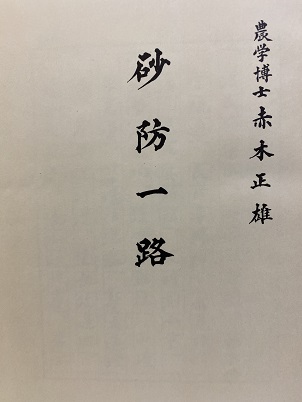 農学博士 赤木正雄
砂防一路